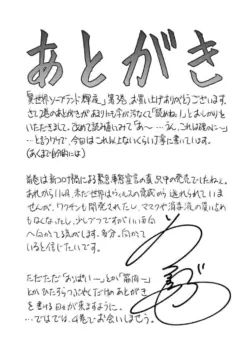 あとがき
「異世界ソープランド輝夜」第3巻、お買い上げありがとうございます。
さて2巻のあとがきがあまりにも字が汚なくて「読めね!」とおしかりを
いただきまして。改めて読み直してみて「あ〜…うん、これは確かに…」
…というワケで、今回はこれ以上ないくらい丁寧に書いています。
(あくまで自分的には)
前巻は新コロナ禍による緊急事態宣言の真っ只中の発売でしたね。
あれから1年、未だ世界はウィルスの脅威から逃れられていま
せんが、ワクチンも開発されたし、マスクや消毒液の買い占め
もなくなったし、少しづつですがいい方向
へ向かってる気がします。多分。向かって
いると信じたいです。
ただただ「おっぱいー」とか「
とか ひたすらつぶやくだけの あとがき
を書ける日々が来ますように。
…ではでは、4巻でお会いしましょう。